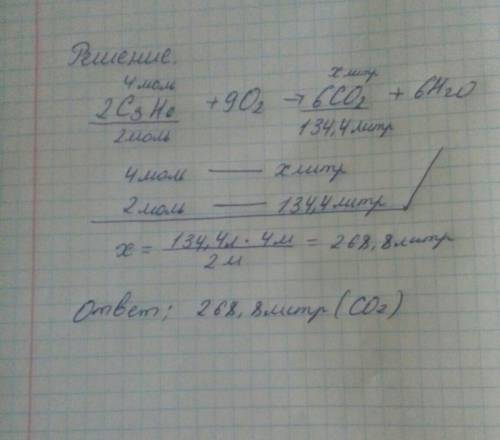 Решение.
4 моль х литр
2C3H6 + 9O2 → 6CO2 + 6H2O
2 моль 134,4 литр
4 моль — х литр
2 моль — 134,4 литр
х = 134,4л · 4м / 2м = 268,8 литр
Ответ; 268,8 литр (CO2)